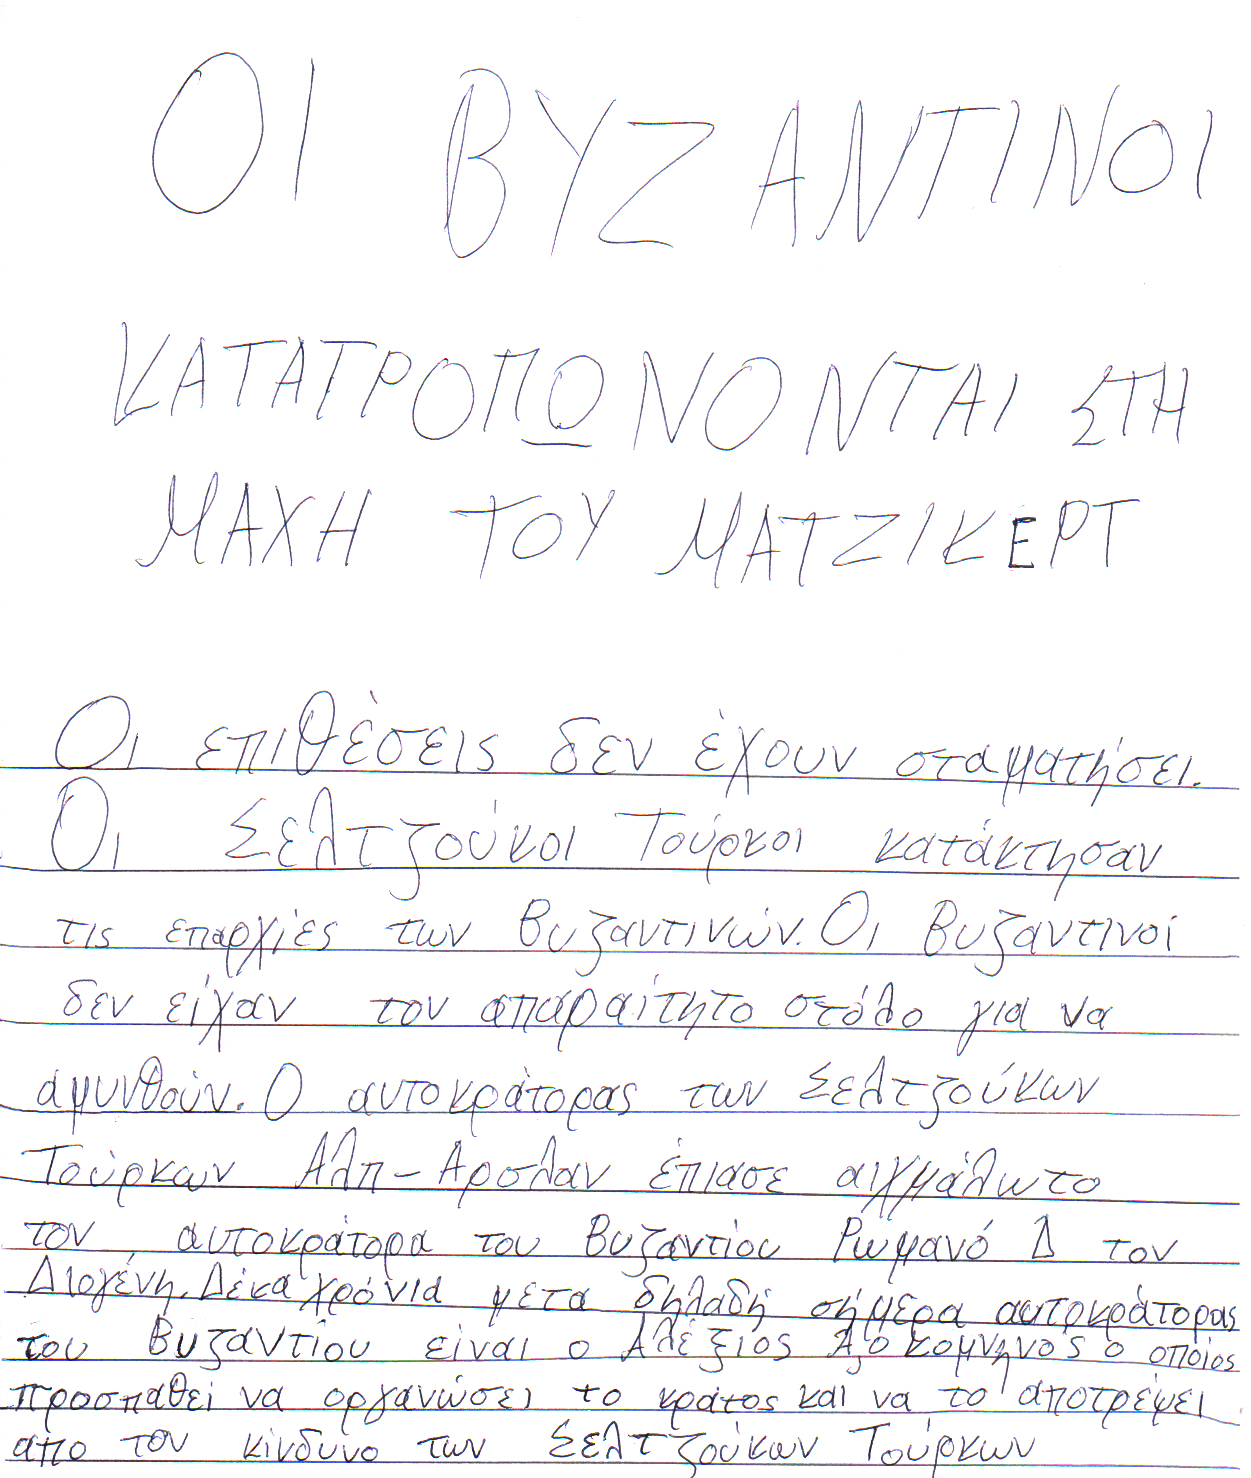 ΟΙ ΒΥΖΑΝΤΙΝΟΙ
ΚΑΤΑΤΡΟΠΩΝΟΝΤΑΙ ΣΤΗ
ΜΑΧΗ ΤΟΥ ΜΑΤΖΙΚΕΡΤ
Οι επιθέσεις δεν έχουν σταματήσει.
Οι Σελτζούκοι Τούρκοι κατάκτησαν
τις επαρχίες των Βυζαντινών. Οι Βυζαντινοί
δεν είχαν τον απαραίτητο στόλο για να
αμυνθούν. Ο αυτοκράτορας των Σελτζούκων
Τούρκων Αλπ-Αρσλαν έπιασε αιχμάλωτο
τον αυτοκράτορα του Βυζαντίου Ρωμανό Δ τον
Διογένη. Δέκα χρόνια μετα δηλαδή σήμερα αυτοκράτορας
του Βυζαντίου είναι ο Αλέξιος Α ο κομνηνός ο οποίος
προσπαθεί να οργανώσει το κράτος και να το αποτρέψει
απο τον κίνδυνο των Σελτζούκων Τούρκων